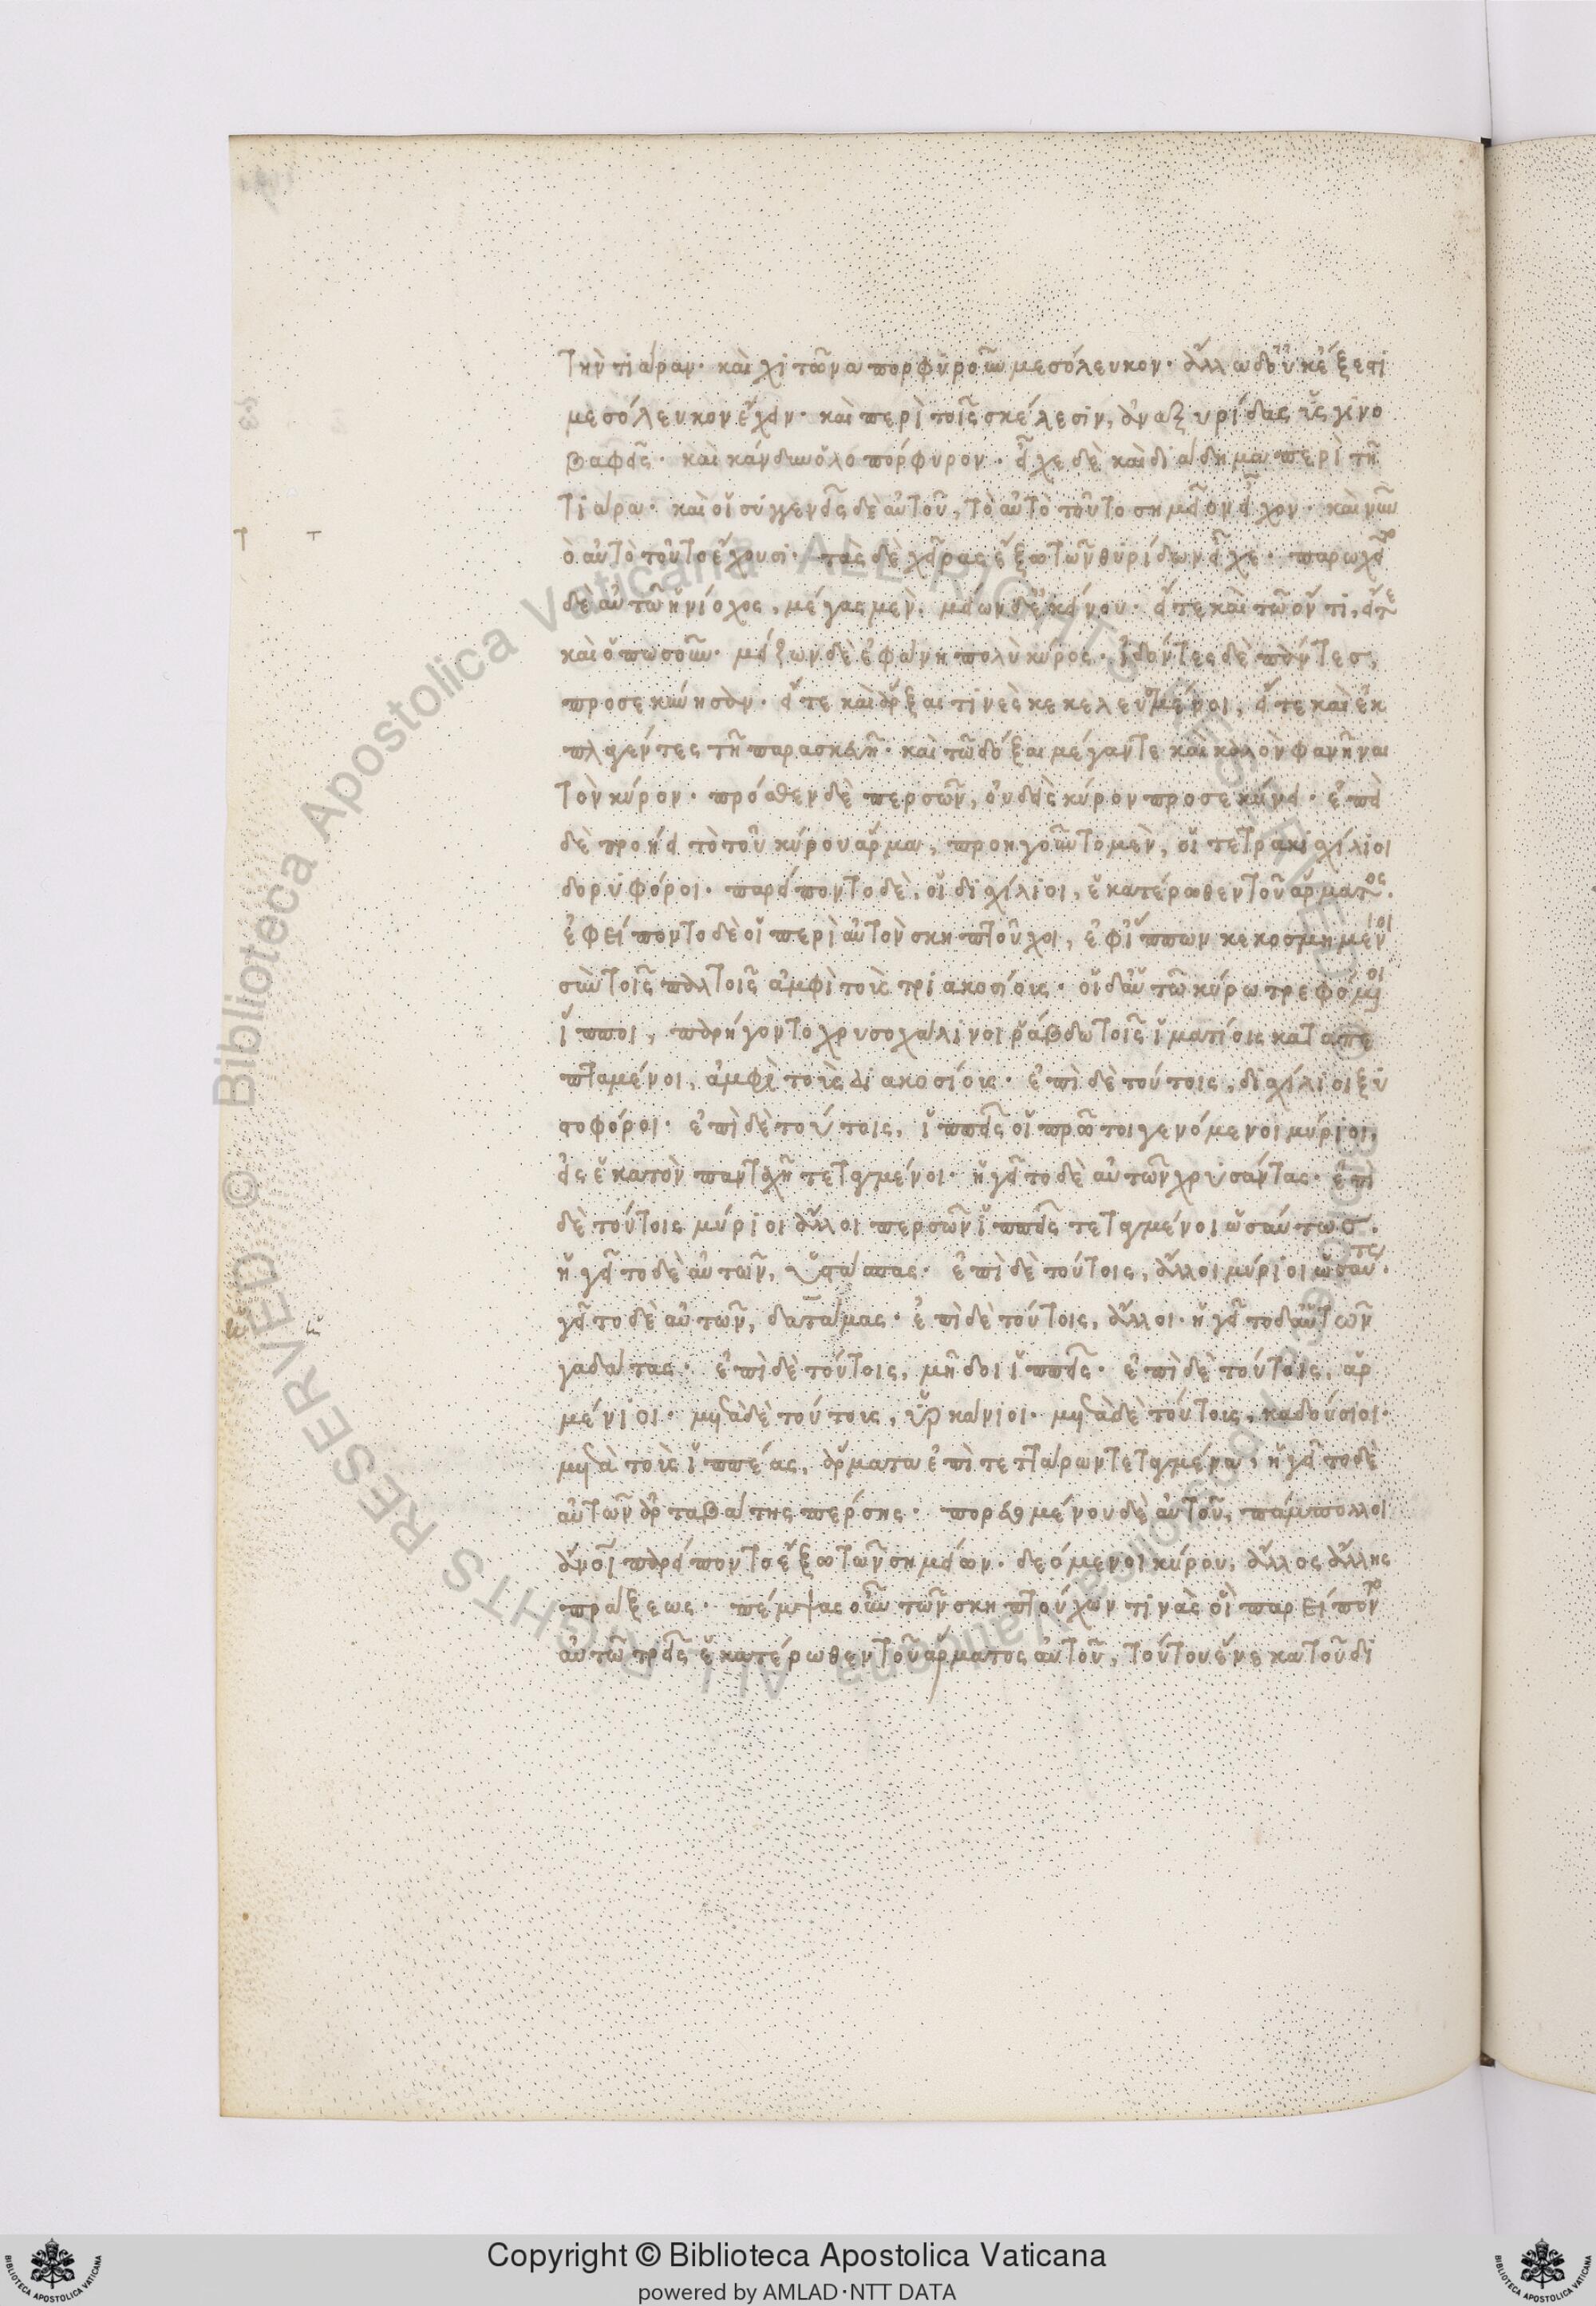 τὴν τιάραν· καὶ χιτῶνα πορφυροῦν μεσόλευκον· ἄλλω δ' οὐκ ἔξεστι
μεσόλευκον ἔχειν· καὶ περὶ τοῖς σκέλεσιν, ἀναξυρίδας ὑσγινο
βαφεῖς· καὶ κάνδυν ὁλοπόρφυρον· εἶχε δὲ καὶ διάδημα περὶ τῆ
τιάρα· καὶ οἱ συγγενεῖς δὲ αὐτοῦ, τὸ αὐτὸ τοῦτο σημεῖον εἶχον· καὶ νῦν
τ
ὸ αὐτὸ τοῦτο ἔχουσι· τὰς δὲ χεῖρας ἔξω τῶν θυρίδων εἶχε· παρωχεῖτο
δὲ αὐτῶ ἡνίοχος, μέγας μὲν, μείων δ' ἐκείνου· εἴτε καὶ τῶ ὄντι, εἴτε
καὶ ὁπωσοῦν· μείζων δὲ ἐφάνη πολὺ κύρος· ἰδόντες δὲ πάντες,
προσεκύνησαν· εἴτε καὶ ἄρξαι τινὲς κεκελευσμένοι, εἴτε καὶ ἐκ
πλαγέντες τῆ παρασκευῆ· καὶ τῶ δόξαι μέγαν τε καὶ καλὸν φανῆναι
τὸν κύρον· πρόσθεν δὲ περσῶν, οὐδεὶς κύρον προσεκύνει· ἐπεὶ
δὲ προήει τὸ τοῦ κύρου ἅρμα, προηγοῦντο μὲν, οἱ τετρακισχίλιοι
δορυφόροι· παρείποντο δὲ, οἱ δισχίλιοι, ἑκατέρωθεν τοῦ ἅρματος.
ἐφείποντο δὲ οἱ περὶ αὐτὸν σκηπτοῦχοι, ἐφ' ἵππων κεκοσμημένοι
σὺν τοῖς παλτοῖς ἀμφὶ τοὺς τριακοσίους· οἱ δ' αὖ τῶ κύρω τρεφόμενοι
ἵπποι, παρήγοντο χρυσοχάλινοι ῥαβδωτοῖς ἱματίοις καταπε
πταμένοι, ἀμφὶ τοὺς διακοσίους· ἐπὶ δὲ τούτοις, δισχίλιοι ξυ
στοφόροι· ἐπὶ δὲ τούτοις, ἱππεῖς οἱ πρῶτοι γενόμενοι μύριοι,
εἰς ἑκατὸν πανταχῆ τεταγμένοι· ἡγεῖτο δὲ αὐτῶν χρυσάντας· ἐπὶ
δὲ τούτοις μύριοι ἄλλοι περσῶν ἱππεῖς τεταγμένοι ὡσαύτως.
ἡγεῖτο δὲ αὐτῶν, ὑστάσπας· ἐπὶ δὲ τούτοις, ἄλλοι μύριοι ὡσαύτως·
ἡ
γεῖτο δὲ αὐτῶν, δατάμας· ἐπὶ δὲ τούτοις, ἄλλοι· ἡγεῖτο δ' αὐτῶν
γαδάτας· ἐπὶ δὲ τούτοις, μῆδοι ἱππεῖς· ἐπὶ δὲ τούτοις, ἀρ
μένιοι· μετὰ δὲ τούτους, ὑρκάνιοι· μετὰ δὲ τούτους, καδούσιοι·
μετὰ τοὺς ἱππέας, ἅρματα ἐπὶ τεττάρων τεταγμένα, ἡγεῖτο δὲ
αὐτῶν ἀρταβάτης πέρσης· πορευομένου δὲ αὐτοῦ, πάμπολλοι
ἄνθρωποι παρείποντο ἔξω τῶν σημείων· δεόμενοι κύρου, ἄλλος ἄλλης
πράξεως· πέμψας οὖν τῶν σκηπτούχων τινὰς οἳ παρείποντο
αὐτῶ τρεῖς ἑκατέρωθεν τοῦ ἅρματος αὐτοῦ, τούτου ἕνεκα τοῦ δι
Copyright © Biblioteca Apostolica Vaticana
powered by AMLAD·NTT DATA